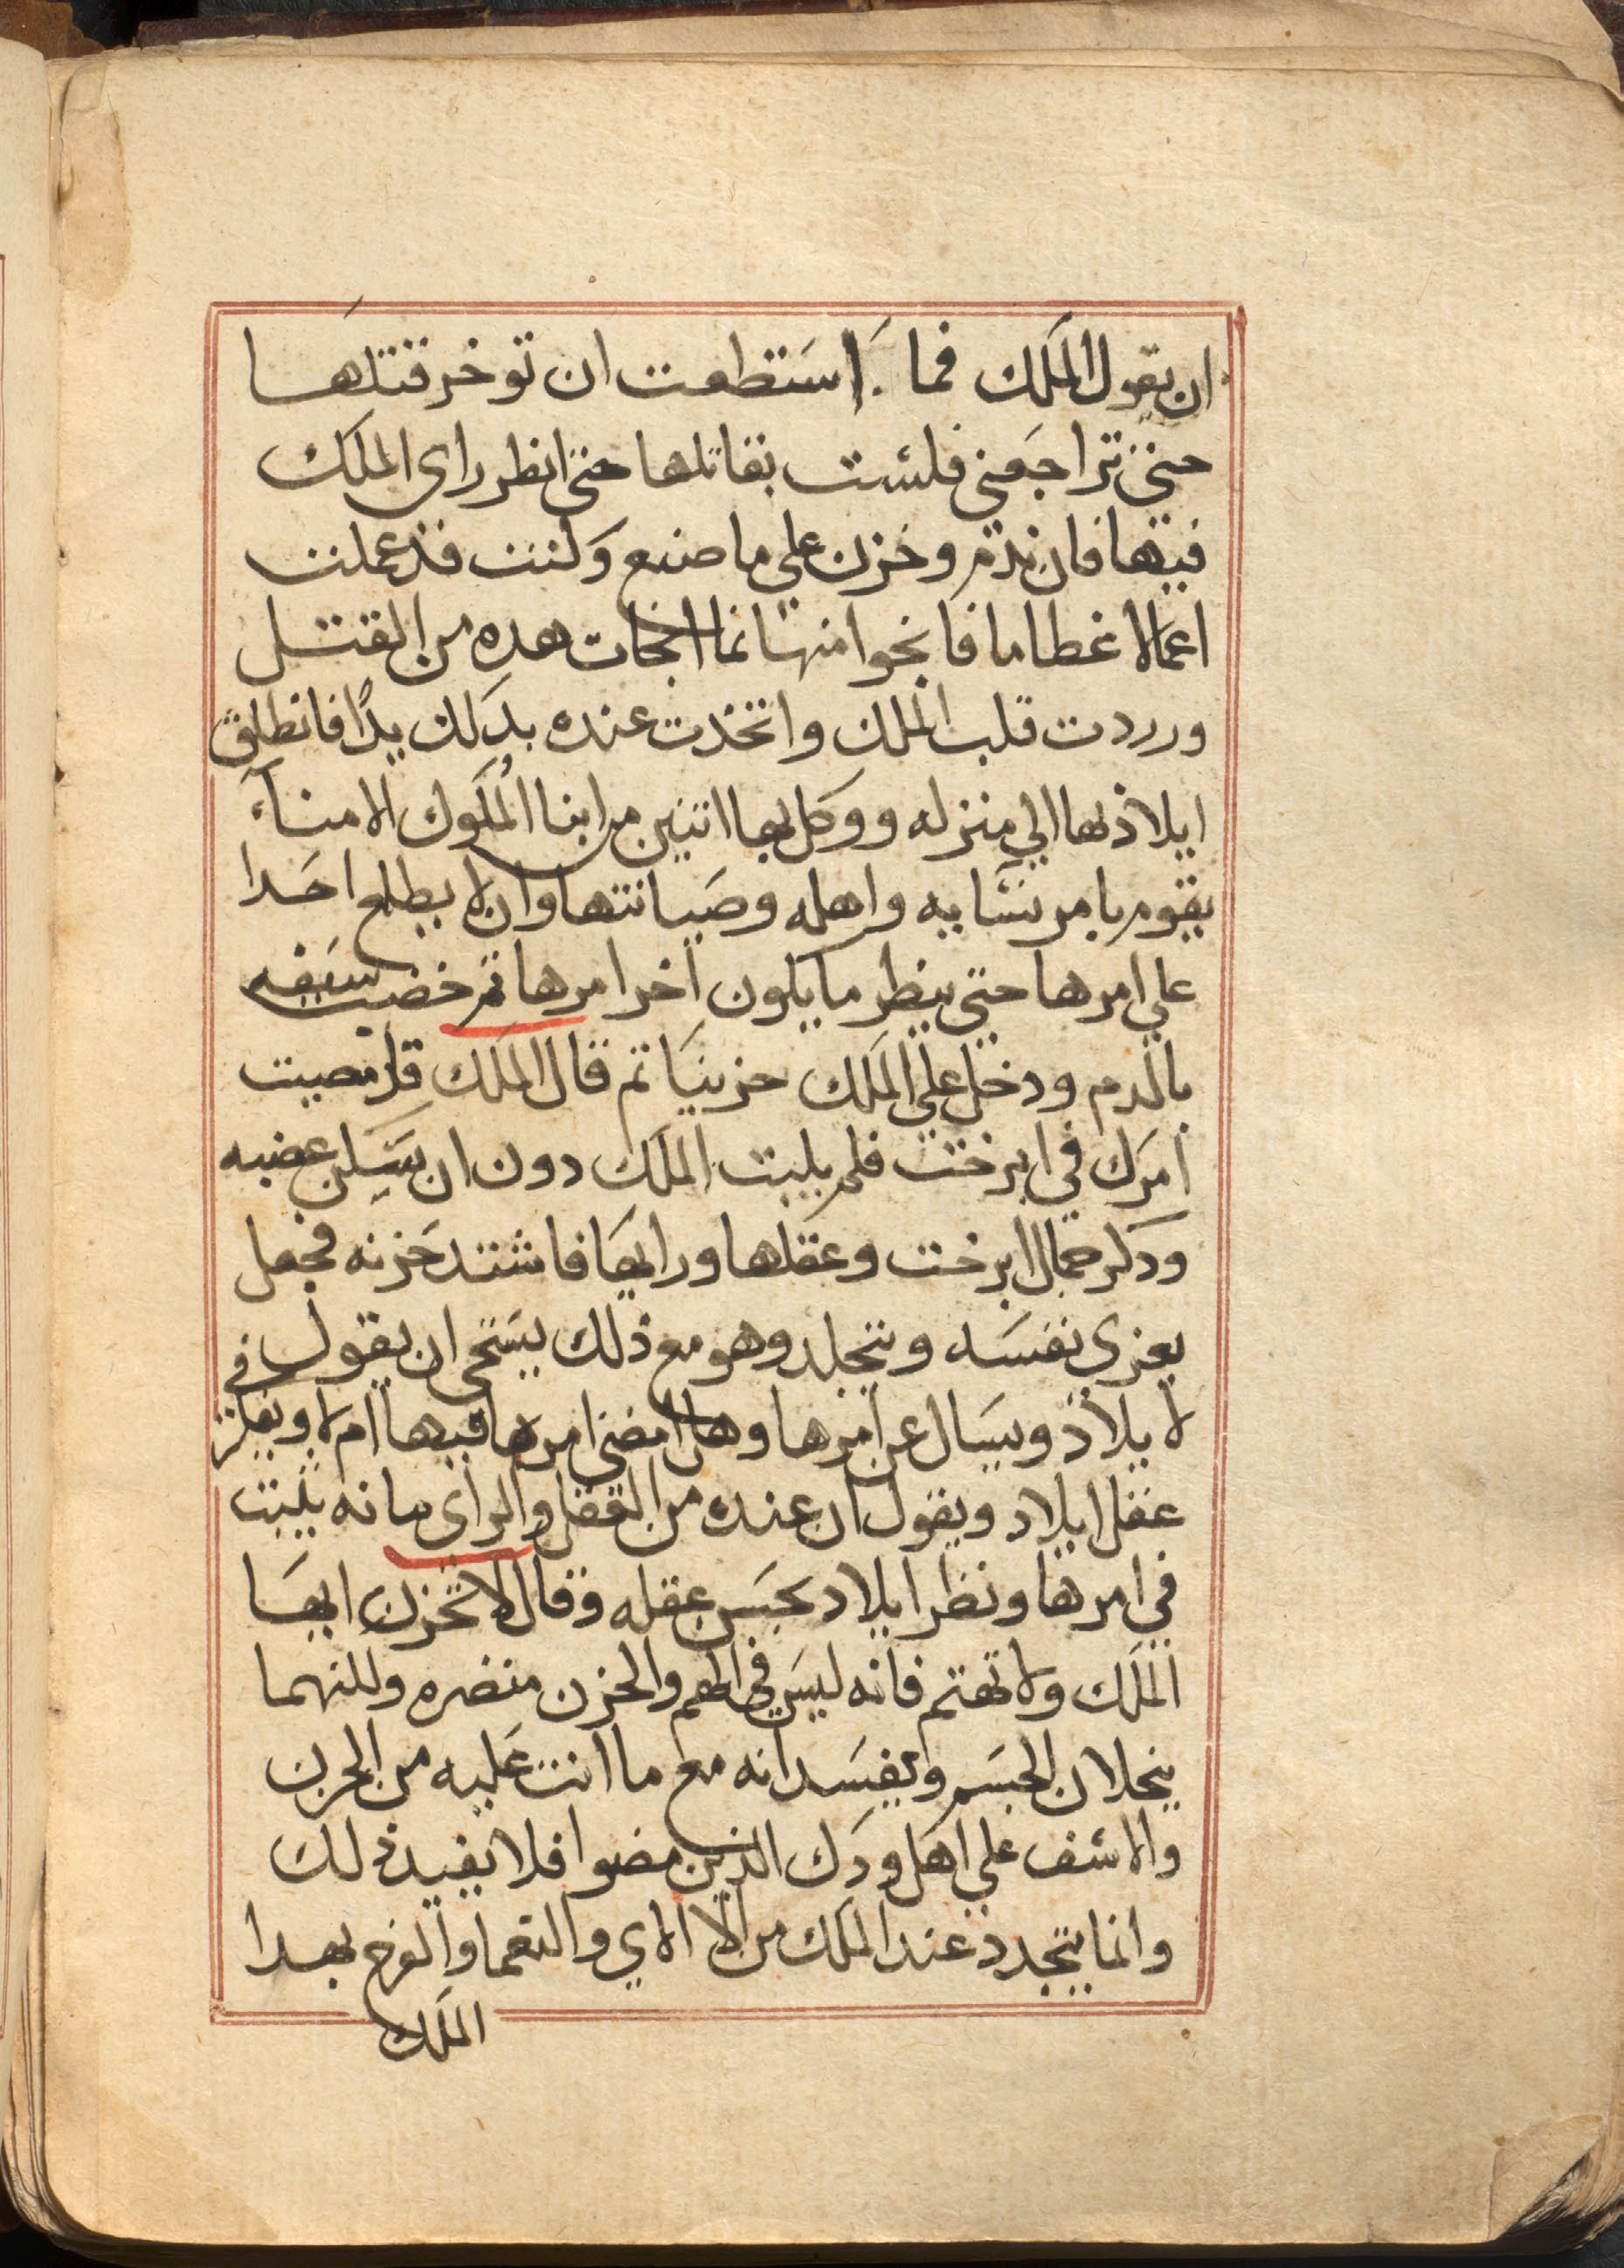 ان يقول الملك فما استطعت ان توخر قتلها
حتى تراجعني فلست بقاتلها حتى انظر راى الملك
فيها فان ندم وخزن على ما صنع وكنت قد عملت
اعمالا غطاما فانجوا منها نما انجات هده من القتل
ورددت قلب الملك واتخذت عنده بدلك يدًا فانطلق
ايلاذ بها الي منزله ووكل بها اتنين من ابنا الملوك الامناء
يقوم بامر نسايه واهله وصيانتها وان لا يطلع احدا
علي امرها حتى ينظر ما يكون اخر امرها تم خضب سيفه
بالدم ودخل علي الملك حزينا تم قال الملك قد مصيت
امرك في ابرخت فلم يلبت الملك دون ان سكن عضبه
ودكر جمال ابرخت وعقلها ورايها فاشتد حزنه فجعل
يعزى نفسه ويتجلد وهو مع ذلك يستحى ان يقول في
لا يلاذ ويسال عن امرها وهل امضى امرها فيها ام لا ويفكر
عقل ايلاد ويقول ان عنده من العقل والراى بانه يلبت
في امرها ونظر ايلاد بحسن عقله وقال لا تحزن ايها
الملك ولا تهتم فانه ليس في الهم والحزن منضره وللنهما
ينحلان الجسم ويفسدانه مع ما انت عليه من الحزن
والاسف علي اهل ودك الذين مضوا فلا يفيد ذلك
وانما يتجدد عند الملك من الا الاي والنعما والفرح بعدا
الملك